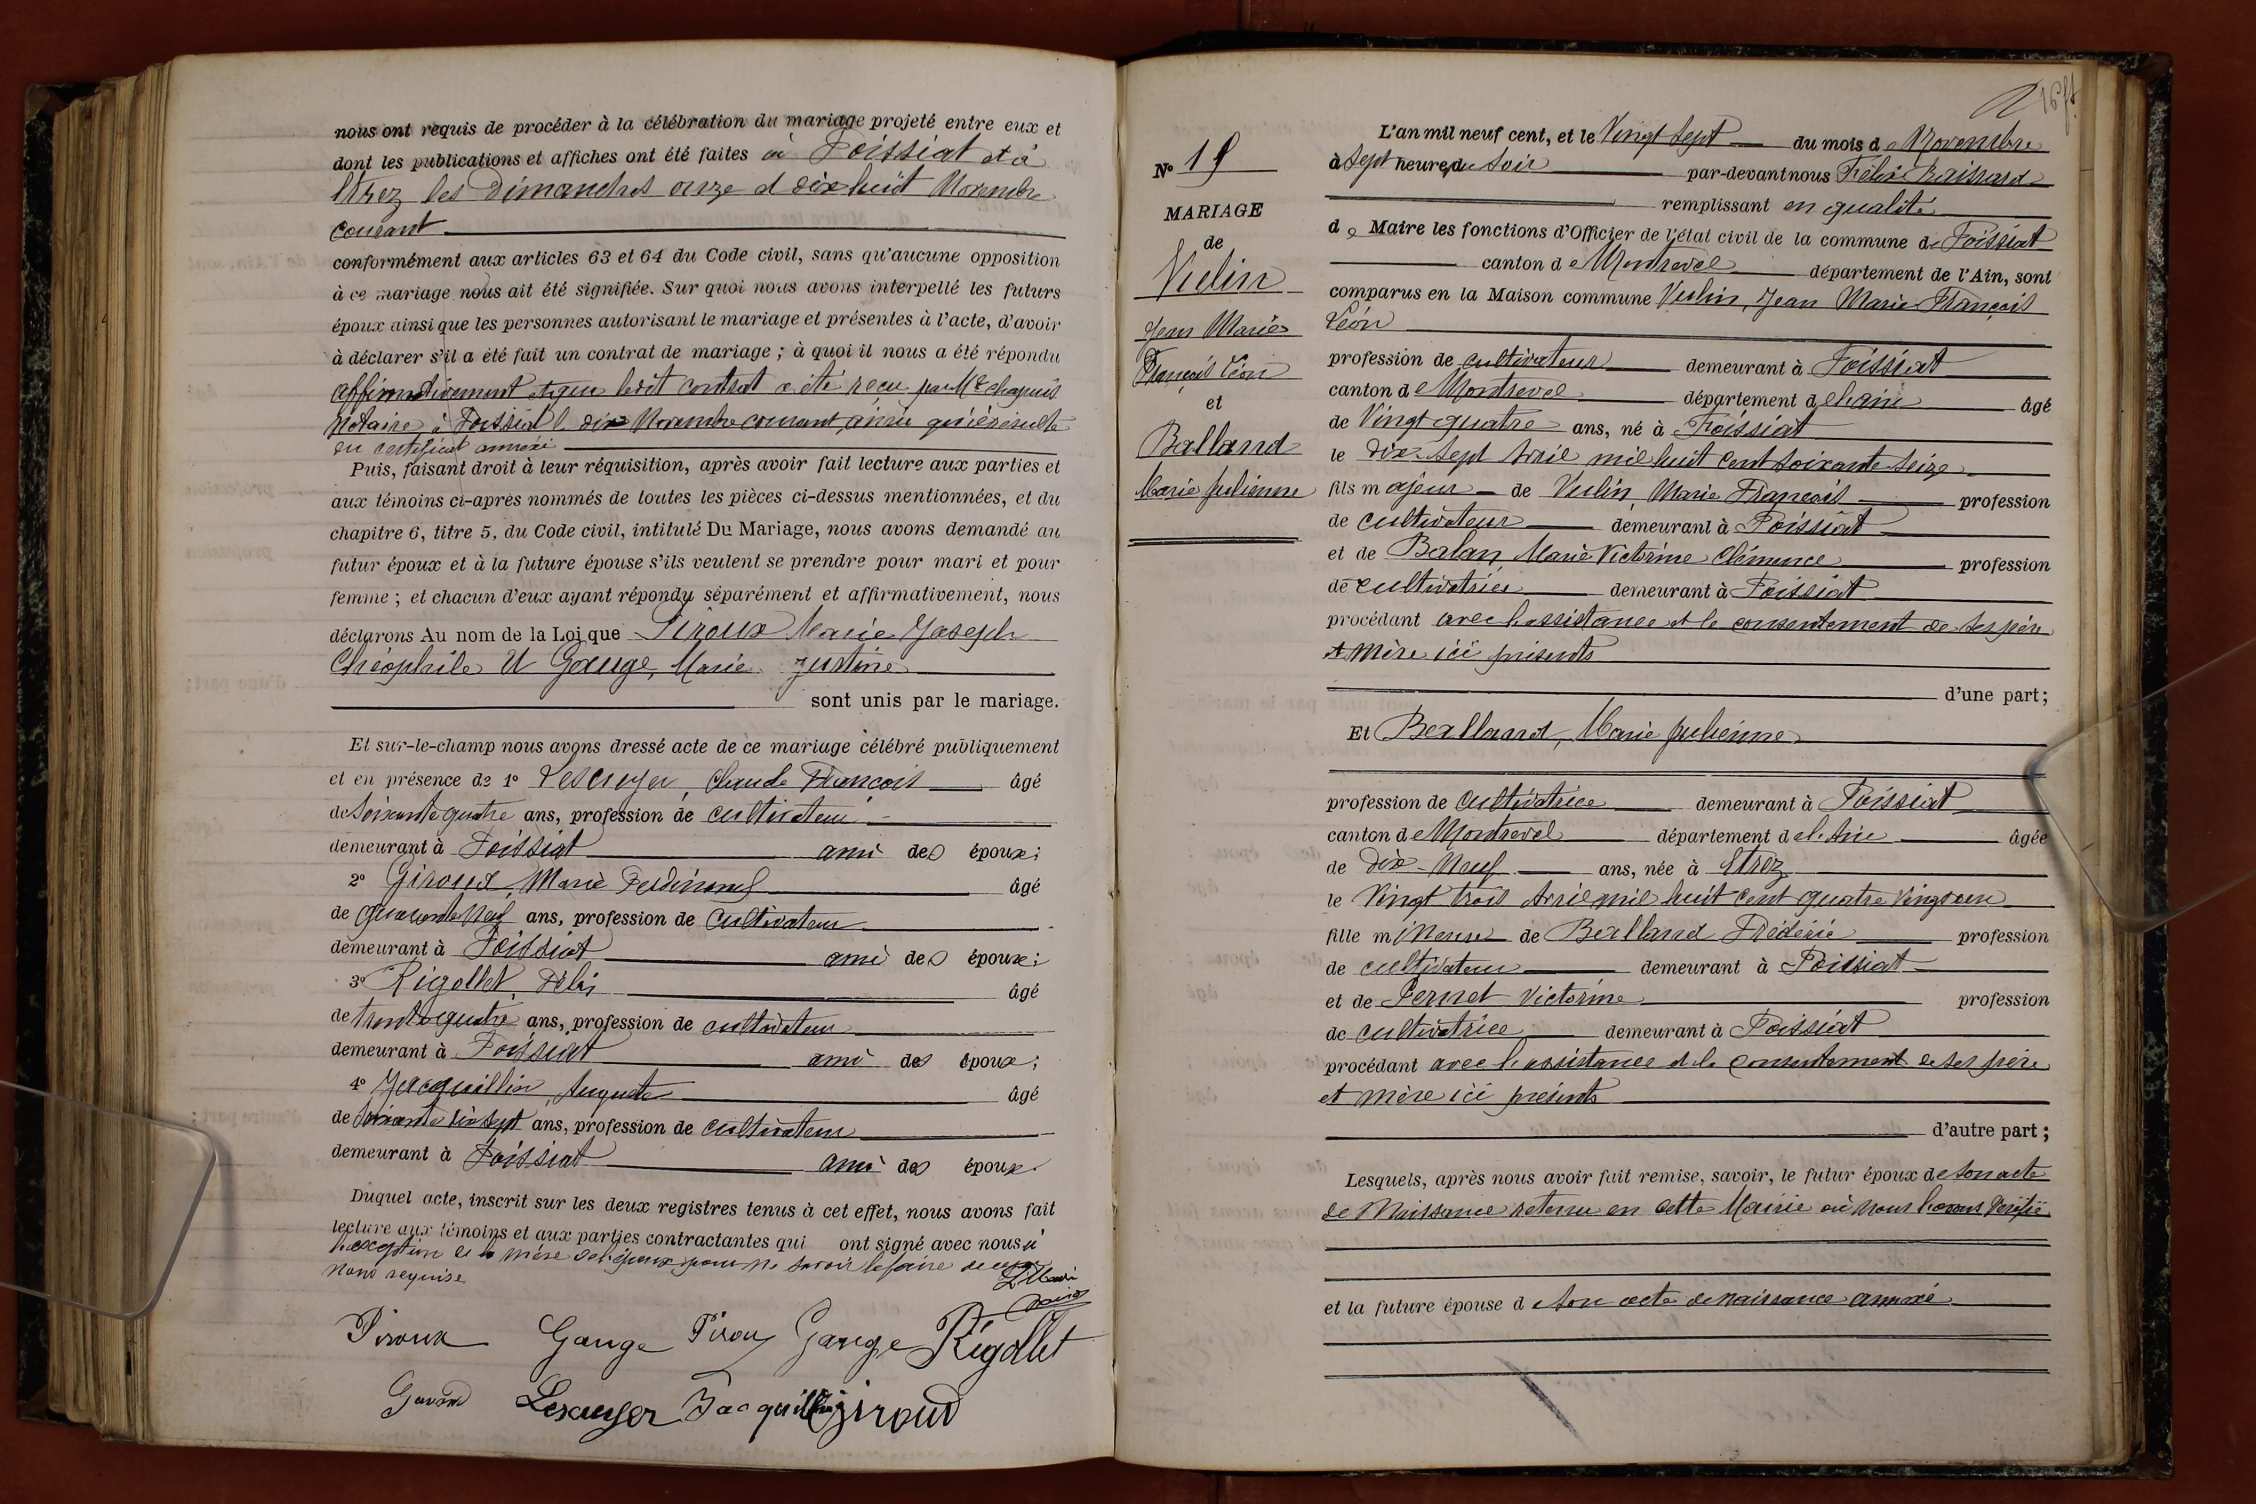 nous ont requis de procéder à la célébration du mariage projeté entre eux et
dont les publications et affiches ont été faites à Foissiat et à
Etrez les Dimanches onze et dix huit Novembre
courant
conformément aux articles 63 et 64 du Code civil, sans qu'aucune opposition
à ce mariage nous ait été signifiée. Sur quoi nous avons interpellé les futurs
époux ainsi que les personnes autorisant le mariage et présentes à l'acte, d'avoir
à déclarer s'il a été fait un contrat de mariage ; à quoi il nous a été répondu
affirmativement et que ledit contrat a été reçu par Me chapuis
Notaire à Foissiat le dix Novembre courant, ainsi qu'il résulte
du certificat annexé
Puis, faisant droit à leur réquisition, après avoir fait lecture aux parties et
aux témoins ci-après nommés de toutes les pièces ci-dessus mentionnées, et du
chapitre 6, titre 5, du Code civil, intitulé Du Mariage, nous avons demandé au
futur époux et à la future épouse s'ils veulent se prendre pour mari et pour
femme ; et chacun d'eux ayant répondu séparément et affirmativement, nous
déclarons Au nom de la Loi que Piroux Marie Joseph
Théophile Et Gauge, Marie Justine
sont unis par le mariage.
Et sur-le-champ nous avons dressé acte de ce mariage célébré publiquement
et en présence de 1° Lescuyer, Claude François âgé
de soixante quatre ans, profession de cultivateur
demeurant à Foissiat ami des époux ;
2° Giroud, Marie Ferdinand âgé
de quarante neuf ans, profession de cultivateur
demeurant à Foissiat ami des époux ;
3° Rigollet, Félix âgé
de trente quatre ans, profession de cultivateur
demeurant à Foissiat ami des époux ;
4° Jacquillin, Auguste âgé
de soixante dix sept ans, profession de cultivateur
demeurant à Foissiat ami des époux.
Duquel acte, inscrit sur les deux registres tenus à cet effet, nous avons fait
lecture aux témoins et aux parties contractantes qui ont signé avec nous à
l'exception de la mère de l'époux pour ne savoir le faire de ce
nous requise
Piroux Gauge Piroux Gauge Rigollet
Lescuyer Jacquillin Giroud
N° 19
MARIAGE
de
Vulin
Jean Marie
François Léon
et
Balland
Marie Julienne
L'an mil neuf cent, et le Vingt Sept du mois de Novembre
à Sept heures du Soir par-devant nous Félix Raissard
remplissant en qualité
de Maire les fonctions d'Officier de l'état civil de la commune de Foissiat
canton de Montrevel département de l'Ain, sont
comparus en la Maison commune Vulin, Jean Marie François
Léon
profession de cultivateur demeurant à Foissiat
canton de Montrevel département de l'ain âgé
de Vingt quatre ans, né à Foissiat
le dix-Sept Avril mil huit cent soixante seize
fils majeur de Vulin Marie François profession
de cultivateur demeurant à Foissiat
et de Balan, Marie Victorine Clémence profession
de cultivatrice demeurant à Foissiat
procédant avec l'assistance et le consentement de ses père
et mère ici présents
d'une part ;
Et Balland, Marie Julienne
profession de cultivatrice demeurant à Foissiat
canton de Montrevel département de l'Ain âgée
de dix-Neuf ans, née à Etrez
le Vingt trois Avril mil huit cent quatre vingt un
fille mineure de Balland Frédéric profession
de cultivateur demeurant à Foissiat
et de Pernet Victorine profession
de cultivatrice demeurant à Foissiat
procédant avec l'assistance et le consentement de ses père
et mère ici présents
d'autre part ;
Lesquels, après nous avoir fait remise, savoir, le futur époux de son acte
de Naissance retenu en cette Mairie où nous l'avons vérifié
et la future épouse de son acte de naissance annexé